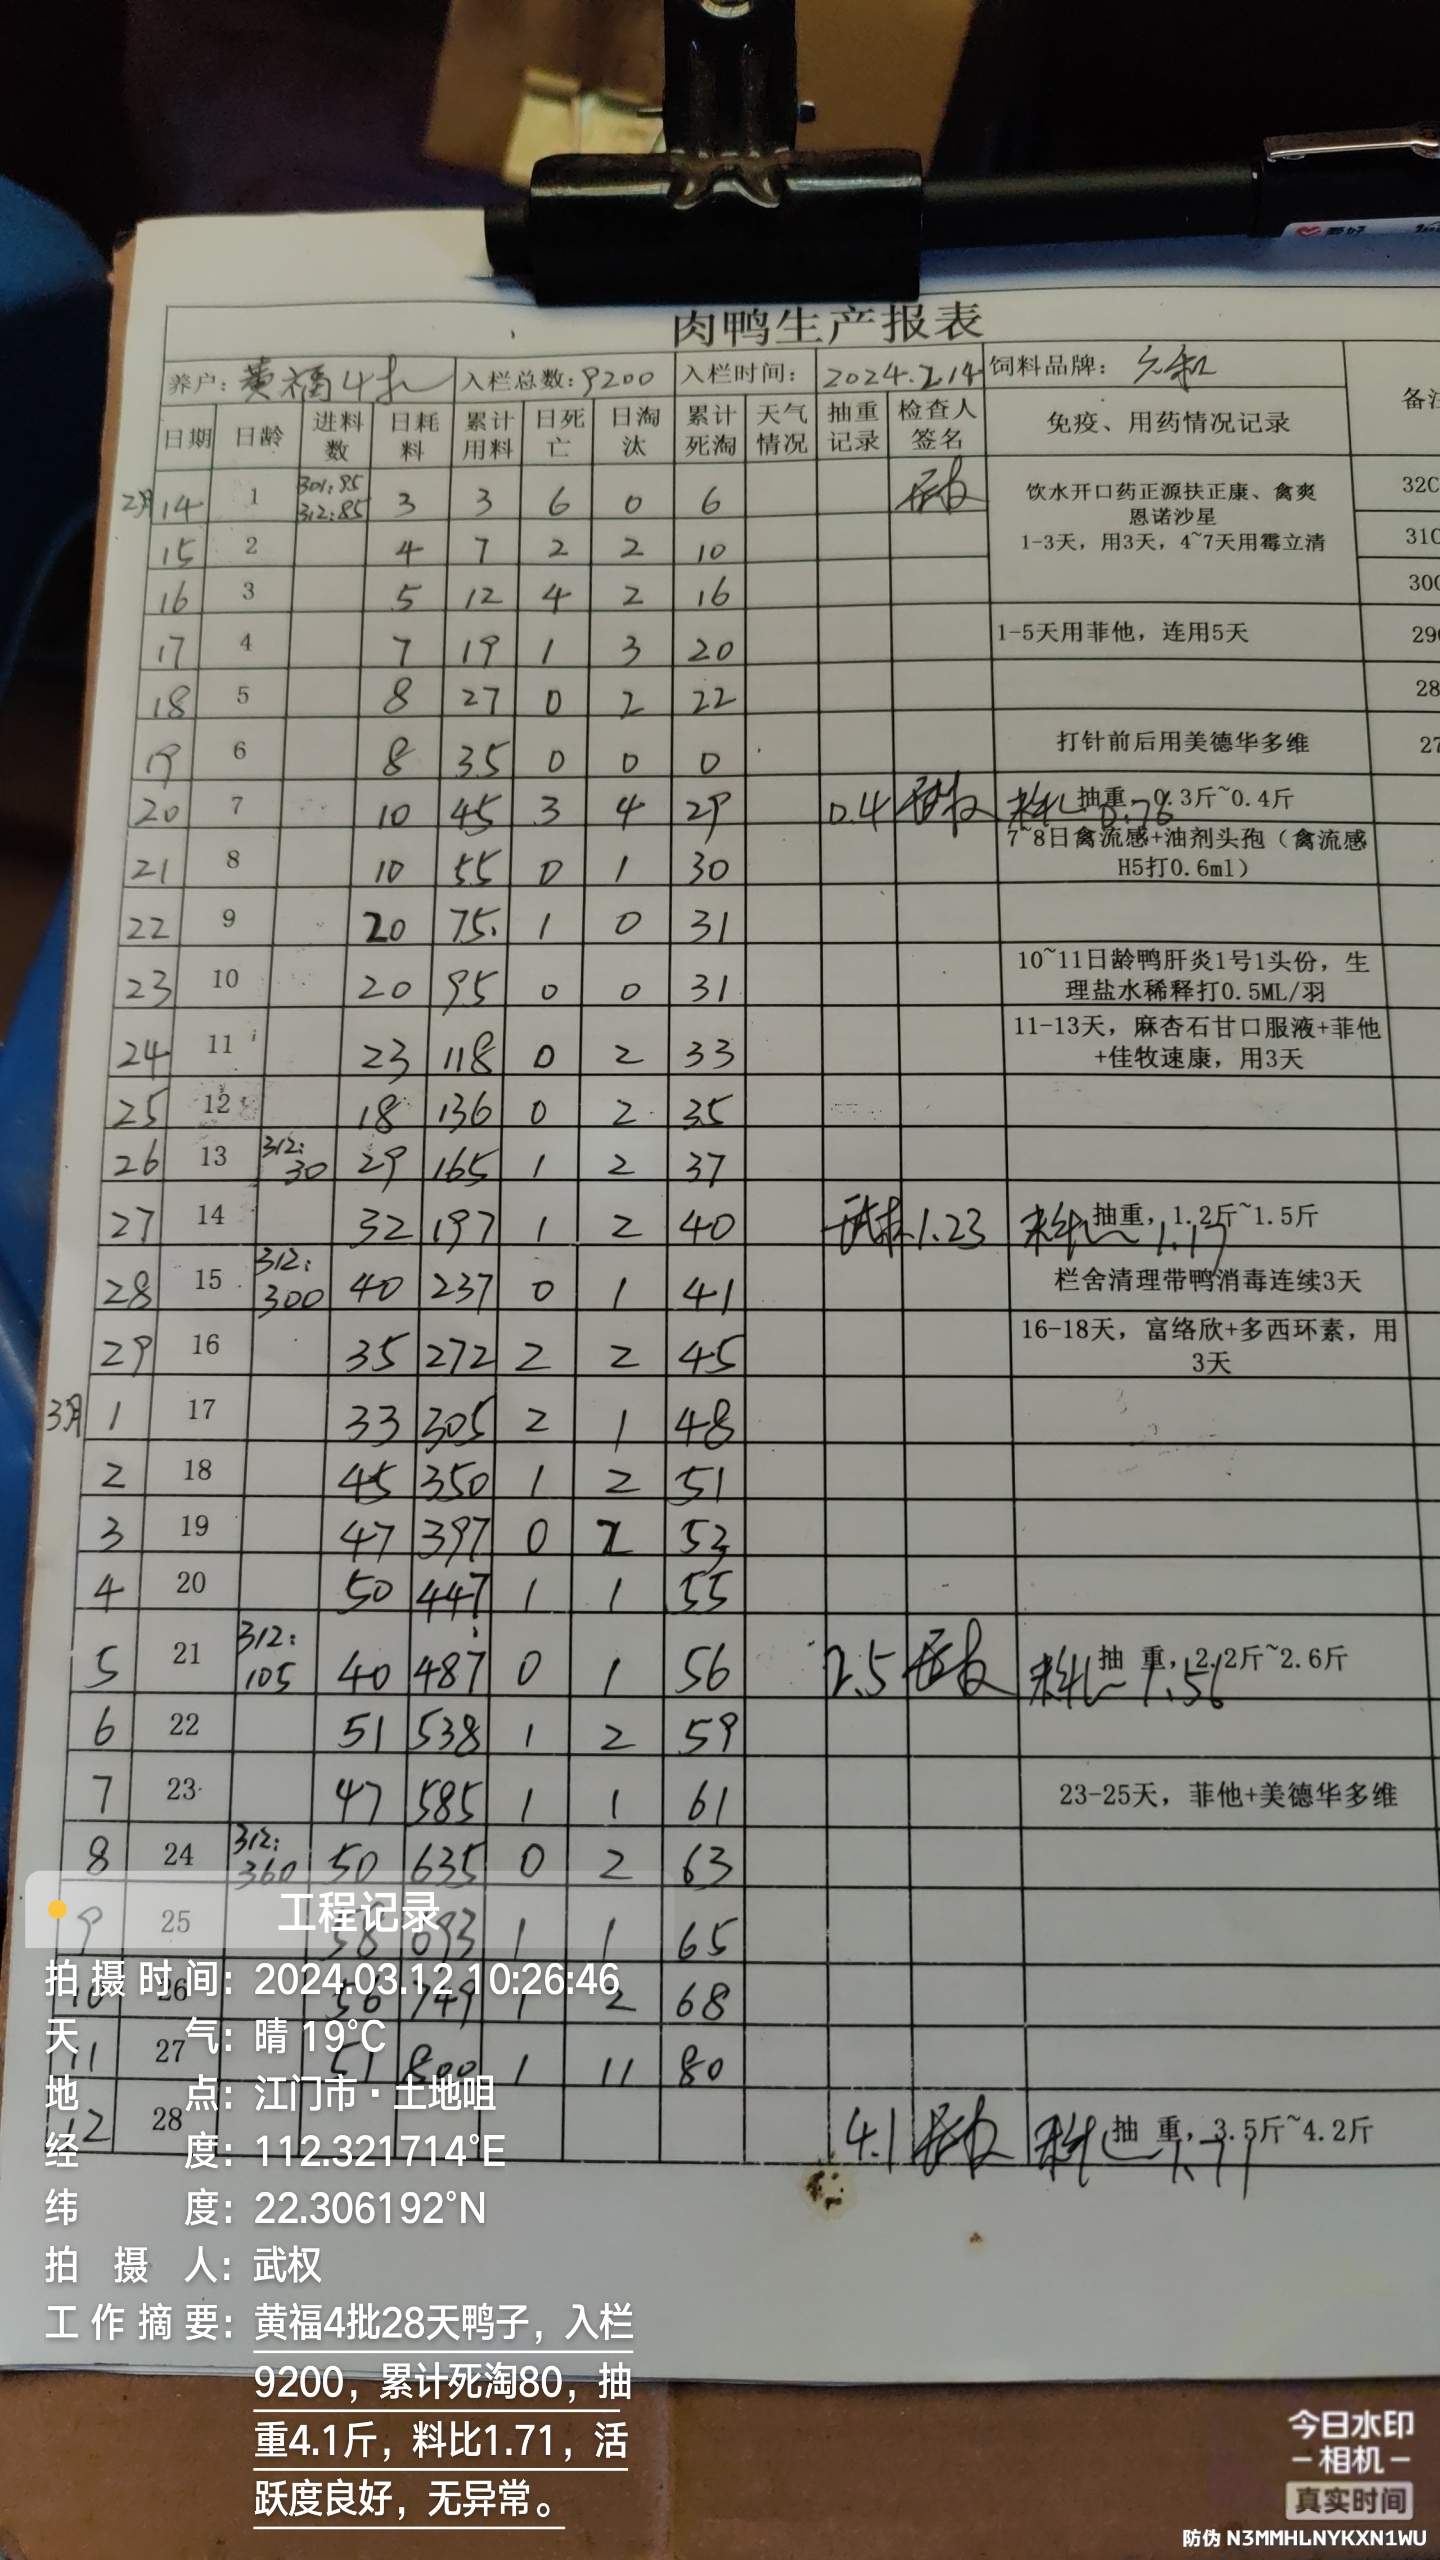 肉鸭生产报表
养户: 黄福4批 入栏总数: 9200 入栏时间: 2024.2.14 饲料品牌:
日期 日龄 进料数 日耗料 累计用料 日死亡 日淘汰 累计死淘 天气情况 抽重记录 检查人签名 免疫、用药情况记录 备注
2月14 1 301:95 312:85 3 3 6 0 6 武权 饮水开口药正源扶正康、禽爽 32C
恩诺沙星
1-3天，用3天，4~7天用霉立清
15 2 4 7 2 2 10 31C
16 3 5 12 4 2 16 30C
17 4 7 19 1 3 20 1-5天用菲他，连用5天 29C
18 5 8 27 0 2 22 28
19 6 8 35 0 0 0 打针前后用美德华多维 27
20 7 10 45 3 4 29 0.4 武权 抽重，0.3斤~0.4斤 料比 0.76
21 8 10 55 0 1 30 7~8日禽流感+油剂头孢（禽流感
H5打0.6ml）
22 9 20 75. 1 0 31
23 10 20 95 0 0 31 10~11日龄鸭肝炎1号1头份，生
理盐水稀释打0.5ML/羽
24 11 23 118 0 2 33 11-13天，麻杏石甘口服液+菲他
+佳牧速康，用3天
25 12 18 136 0 2 35
26 13 312:30 29 165 1 2 37
27 14 32 197 1 2 40 武权 1.23 抽重，1.2斤~1.5斤 料比 1.17
28 15 312:300 40 237 0 1 41 栏舍清理带鸭消毒连续3天
29 16 35 272 2 2 45 16-18天，富络欣+多西环素，用
3天
3月1 17 33 305 2 1 48
2 18 45 350 1 2 51
3 19 47 397 0 2 53
4 20 50 447 1 1 55
5 21 312:105 40 487 0 1 56 2.5 武权 抽 重，2.2斤~2.6斤 料比 1.56
6 22 51 538 1 2 59
7 23 47 585 1 1 61 23-25天，菲他+美德华多维
8 24 312:360 50 635 0 2 63
9 25 58 693 1 1 65
10 26 56 749 1 2 68
11 27 51 800 1 11 80
12 28 4.1 武权 抽 重，3.5斤~4.2斤 料比 1.71
工程记录
拍摄时间: 2024.03.12 10:26:46
天气: 晴 19°C
地点: 江门市·土地咀
经度: 112.321714°E
纬度: 22.306192°N
拍摄人: 武权
工作摘要: 黄福4批28天鸭子，入栏
9200，累计死淘80，抽
重4.1斤，料比1.71，活
跃度良好，无异常。
今日水印
相机
真实时间
防伪 N3MMHLNYKXN1WU